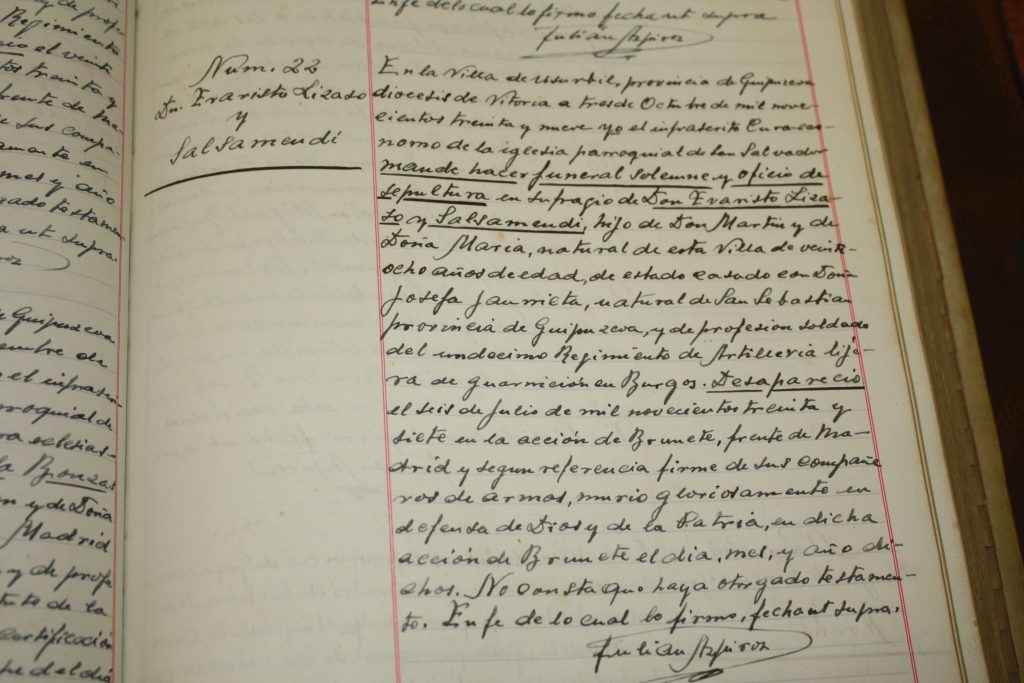 y de profe
Regimiento
el veinte
treinta y
frente de Ma-
sus compa-
amente en
mes y año
gado testamen-
a ut supra.
y Guipuzcoa
embre de
el infrascri-
roquial de
ra eclesias-
la Bronzas
n y de Doña
Madrid
y de profe
nto de la
certificación
he del día
Num. 22
Dn. Evaristo Lizaso
y
Salsamendi
En fe de lo cual lo firmo fecha ut supra
Julian Azpiroz
En la Villa de Usurbil, provincia de Guipuzcoa
diocesis de Vitoria a tres de Octubre de mil nove-
cientos treinta y nueve yo el infrascrito Cura eco-
nomo de la iglesia parroquial de San Salvador
mande hacer funeral solemne y oficio de
sepultura en sufragio de Don Evaristo Liza-
so y Salsamendi, hijo de Don Martin y de
Doña Maria, natural de esta Villa de veinti-
ocho años de edad, de estado casado con Doña
Josefa Jaurrieta, natural de San Sebastian
provincia de Guipuzcoa, y de profesion soldado
del undecimo Regimiento de Artilleria lije-
ra de guarnición en Burgos. Desapareció
el seis de Julio de mil novecientos treinta y
siete en la acción de Brunete, frente de Ma-
drid y segun referencia firme de sus compañe
ros de armas, murio gloriosamente en
defensa de Dios y de la Patria, en dicha
acción de Brunete el dia, mes, y año di-
chos. No consta que haya otorgado testamen-
to. En fe de lo cual lo firmo, fecha ut supra.
Julian Azpiroz